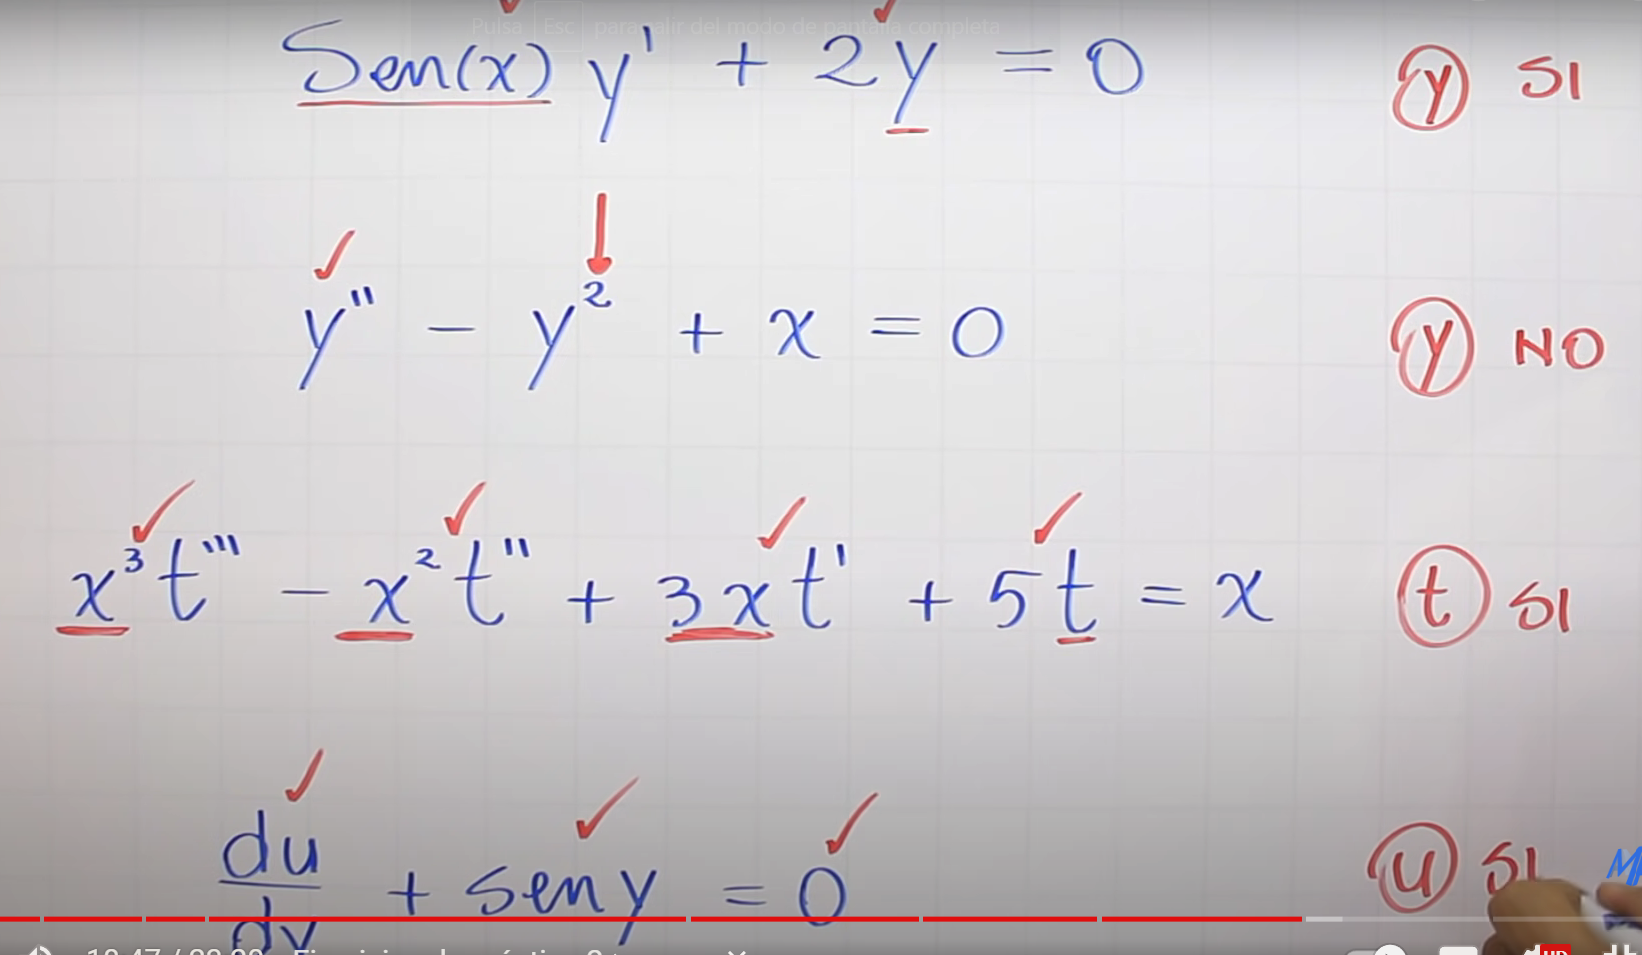 Pulsa Esc para salir del modo de pantalla completa
Sen(x) y' + 2y = 0 y SI
y'' - y² + x = 0 y NO
x³t''' - x²t'' + 3xt' + 5t = x t SI
du/dy + sen y = 0 u SI
HD